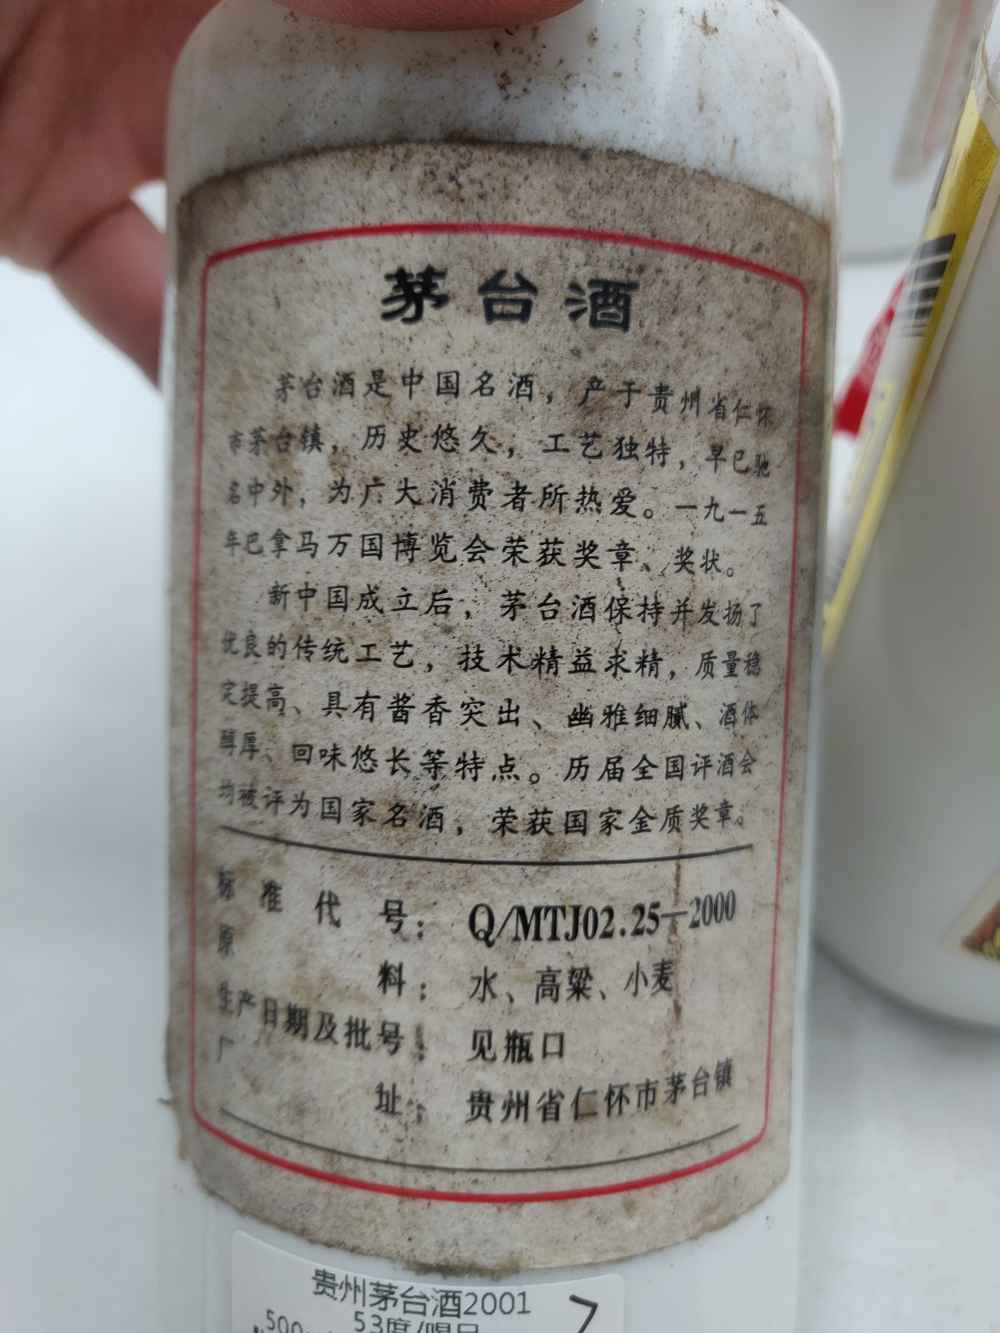 茅台酒
茅台酒是中国名酒，产于贵州省仁怀
市茅台镇，历史悠久，工艺独特，早已驰
名中外，为广大消费者所热爱。一九一五
年巴拿马万国博览会荣获奖章、奖状。
新中国成立后，茅台酒保持并发扬了
优良的传统工艺，技术精益求精，质量稳
定提高、具有酱香突出、幽雅细腻、酒体
醇厚、回味悠长等特点。历届全国评酒会
均被评为国家名酒，荣获国家金质奖章。
标准代号：Q/MTJ02.25—2000
原料：水、高粱、小麦
生产日期及批号：见瓶口
厂址：贵州省仁怀市茅台镇
贵州茅台酒2001
53度
7